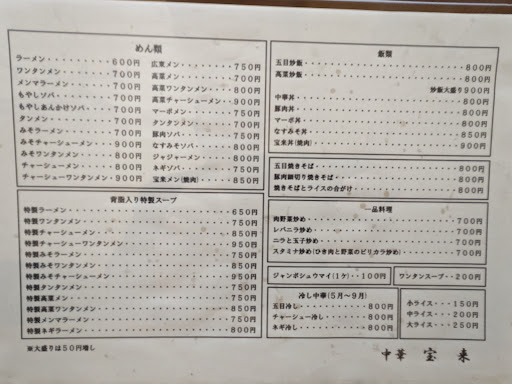 めん類
ラーメン・・・・・・・600円
ワンタンメン・・・・・700円
メンマラーメン・・・・700円
もやしソバ・・・・・・700円
もやしあんかけソバ・・700円
タンメン・・・・・・・700円
みそラーメン・・・・・700円
みそチャーシューメン・900円
みそワンタンメン・・・800円
チャーシューメン・・・800円
チャーシューワンタンメン・・900円
広東メン・・・・・・・750円
高菜メン・・・・・・・700円
高菜ワンタンメン・・・800円
高菜チャーシューメン・900円
マーボメン・・・・・・750円
タンタンメン・・・・・700円
豚肉ソバ・・・・・・・750円
なすみそソバ・・・・・800円
ジャジャーメン・・・・800円
ネギソバ・・・・・・・750円
宝来メン(焼肉)・・・・850円
背脂入り特製スープ
特製ラーメン・・・・・・・・・650円
特製ワンタンメン・・・・・・・750円
特製チャーシューメン・・・・・850円
特製チャーシューワンタンメン・・950円
特製みそラーメン・・・・・・・750円
特製みそワンタンメン・・・・・850円
特製みそチャーシューメン・・・950円
特製タンタンメン・・・・・・・750円
特製高菜メン・・・・・・・・・750円
特製高菜ワンタンメン・・・・・850円
特製メンマラーメン・・・・・・750円
特製ネギラーメン・・・・・・・800円
※大盛りは50円増し
飯類
五目炒飯・・・・・・・・・・・800円
高菜炒飯・・・・・・・・・・・800円
炒飯大盛り900円
中華丼・・・・・・・・・・・・800円
豚肉丼・・・・・・・・・・・・800円
マーボ丼・・・・・・・・・・・800円
なすみそ丼・・・・・・・・・・850円
宝来丼(焼肉)・・・・・・・・・900円
五目焼きそば・・・・・・・・・800円
豚肉細切り焼きそば・・・・・・800円
焼きそばとライスの合がけ・・・800円
一品料理
肉野菜炒め・・・・・・・・・・700円
レバニラ炒め・・・・・・・・・700円
ニラと玉子炒め・・・・・・・・700円
スタミナ炒め(ひき肉と野菜のピリカラ炒め)・・700円
ジャンボシュウマイ(1ケ)・・・100円
ワンタンスープ・・・200円
冷し中華(5月〜9月)
五目冷し・・・・・・・800円
チャーシュー冷し・・・800円
ネギ冷し・・・・・・・800円
小ライス・・・150円
中ライス・・・200円
大ライス・・・250円
中華 宝来